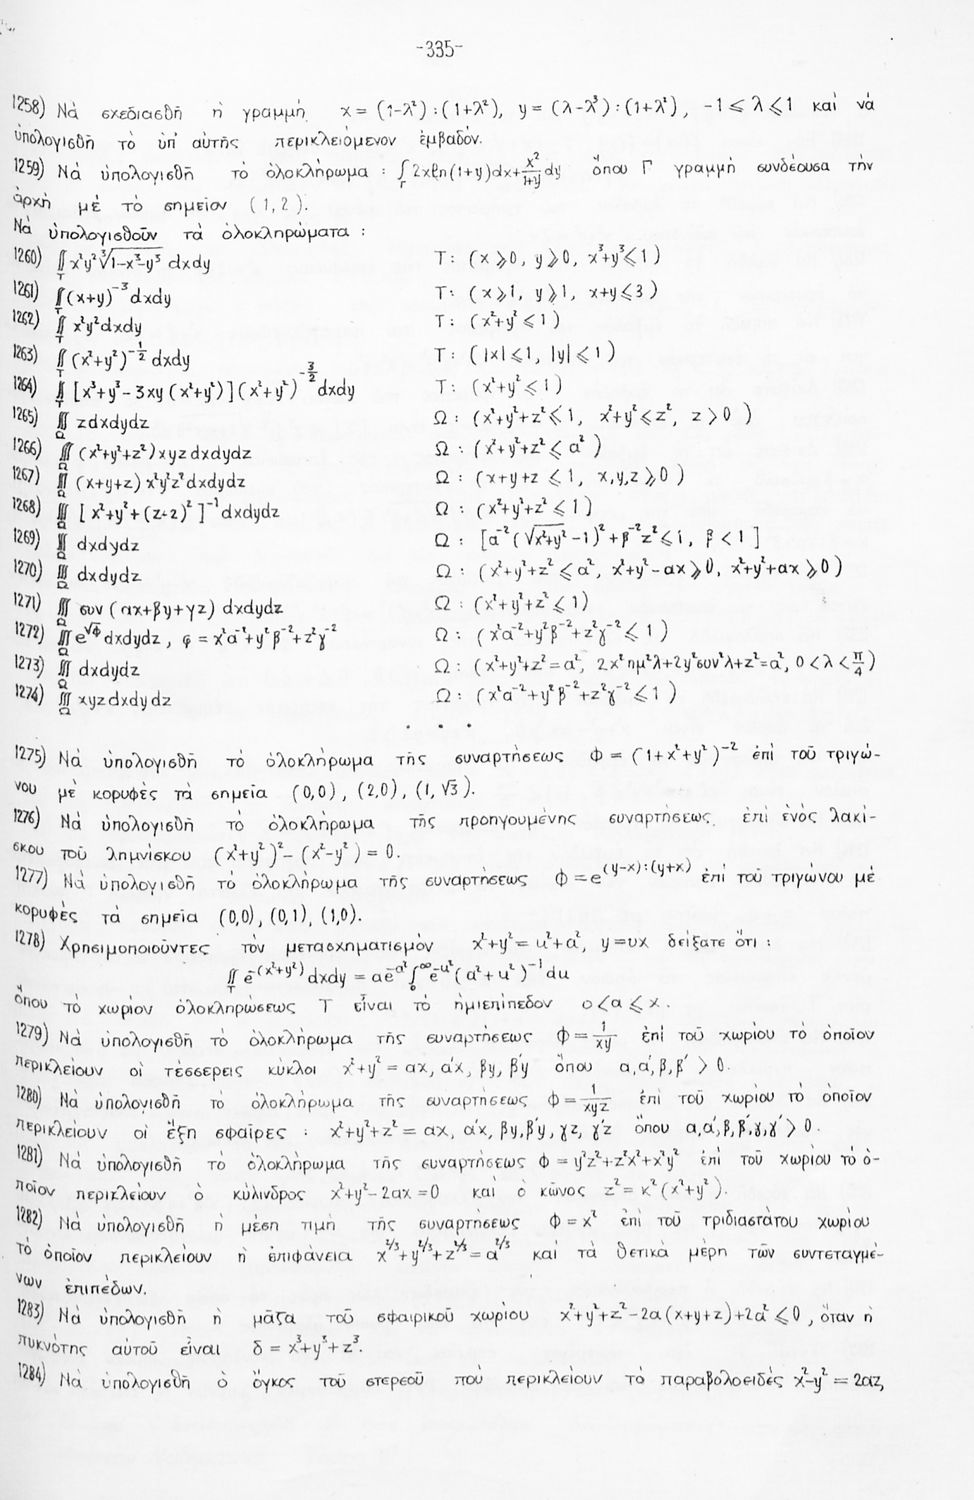 -335-
1258) Νὰ σχεδιασθῆ ἡ γραμμὴ x = (1-λ²):(1+λ²), y = (λ-λ³):(1+λ²), -1 ⩽ λ ⩽ 1 καὶ νὰ
ὑπολογισθῆ τὸ ὑπ' αὐτῆς περικλειόμενον ἐμβαδόν.
1259) Νὰ ὑπολογισθῆ τὸ ὁλοκλήρωμα : ∫_Γ 2xℓn(1+y)dx+\frac{x²}{1+y}dy ὅπου Γ γραμμὴ συνδέουσα τὴν
ἀρχὴ μὲ τὸ σημεῖον (1,2).
Νὰ ὑπολογισθοῦν τὰ ὁλοκληρώματα :
1260) ∬_T x²y²∛(1-x³-y³) dxdy T: (x ⩾ 0, y ⩾ 0, x³+y³ ⩽ 1)
1261) ∬_T (x+y)⁻³dxdy T: (x ⩾ 1, y ⩾ 1, x+y ⩽ 3)
1262) ∬_T x²y²dxdy T: (x²+y² ⩽ 1)
1263) ∬_T (x²+y²)^{-1/2} dxdy T: (|x| ⩽ 1, |y| ⩽ 1)
1264) ∬_T [x³+y³-3xy(x²+y²)](x²+y²)^{-3/2} dxdy T: (x²+y² ⩽ 1)
1265) ∭_Ω zdxdydz Ω: (x²+y²+z² ⩽ 1, x²+y² ⩽ z², z > 0)
1266) ∭_Ω (x²+y²+z²)xyz dxdydz Ω: (x²+y²+z² ⩽ α²)
1267) ∭_Ω (x+y+z) x²y²z²dxdydz Ω: (x+y+z ⩽ 1, x,y,z ⩾ 0)
1268) ∭_Ω [x²+y²+(z-2)²]⁻¹dxdydz Ω: (x²+y²+z² ⩽ 1)
1269) ∭_Ω dxdydz Ω: [α⁻²(√(x²+y²)-1)²+β⁻²z² ⩽ 1, β < 1]
1270) ∭_Ω dxdydz Ω: (x²+y²+z² ⩽ α², x²+y²-αx ⩾ 0, x²+y²+αx ⩾ 0)
1271) ∭_Ω συν(αx+βy+γz) dxdydz Ω: (x²+y²+z² ⩽ 1)
1272) ∭_Ω e^{√φ}dxdydz, φ = x²α⁻²+y²β⁻²+z²γ⁻² Ω: (x²α⁻²+y²β⁻²+z²γ⁻² ⩽ 1)
1273) ∭_Ω dxdydz Ω: (x²+y²+z²=α², 2x²ημ²λ+2y²συν²λ+z²=α², 0<λ<\frac{π}{4})
1274) ∭_Ω xyzdxdydz Ω: (x²α⁻²+y²β⁻²+z²γ⁻² ⩽ 1)
• • •
1275) Νὰ ὑπολογισθῆ τὸ ὁλοκλήρωμα τῆς συναρτήσεως Φ = (1+x²+y²)⁻² ἐπὶ τοῦ τριγώ-
νου μὲ κορυφὲς τὰ σημεῖα (0,0), (2,0), (1,√3).
1276) Νὰ ὑπολογισθῆ τὸ ὁλοκλήρωμα τῆς προηγουμένης συναρτήσεως ἐπὶ ἑνὸς λακί-
σκου τοῦ λημνίσκου (x²+y²)²-(x²-y²) = 0.
1277) Νὰ ὑπολογισθῆ τὸ ὁλοκλήρωμα τῆς συναρτήσεως Φ = e^{(y-x):(y+x)} ἐπὶ τοῦ τριγώνου μὲ
κορυφὲς τὰ σημεῖα (0,0), (0,1), (1,0).
1278) Χρησιμοποιοῦντες τὸν μετασχηματισμὸν x²+y² = u²+α², y = υx δείξατε ὅτι :
∬_T e^{-(x²+y²)}dxdy = αe^{-α²}∫_0^∞ e^{-u²}(α²+u²)⁻¹du
ὅπου τὸ χωρίον ὁλοκληρώσεως T εἶναι τὸ ἡμιεπίπεδον 0<α ⩽ x.
1279) Νὰ ὑπολογισθῆ τὸ ὁλοκλήρωμα τῆς συναρτήσεως Φ = \frac{1}{xy} ἐπὶ τοῦ χωρίου τὸ ὁποῖον
περικλείουν οἱ τέσσερεις κύκλοι x²+y² = αx, α'x, βy, β'y ὅπου α,α',β,β' > 0.
1280) Νὰ ὑπολογισθῆ τὸ ὁλοκλήρωμα τῆς συναρτήσεως Φ = \frac{1}{xyz} ἐπὶ τοῦ χωρίου τὸ ὁποῖον
περικλείουν οἱ ἕξη σφαῖρες : x²+y²+z² = αx, α'x, βy, β'y, γz, γ'z ὅπου α,α',β,β',γ,γ' > 0.
1281) Νὰ ὑπολογισθῆ τὸ ὁλοκλήρωμα τῆς συναρτήσεως Φ = y²z²+z²x²+x²y² ἐπὶ τοῦ χωρίου τὸ ὁ-
ποῖον περικλείουν ὁ κύλινδρος x²+y²-2αx = 0 καὶ ὁ κῶνος z² = κ²(x²+y²).
1282) Νὰ ὑπολογισθῆ ἡ μέση τιμὴ τῆς συναρτήσεως Φ = x² ἐπὶ τοῦ τριδιαστάτου χωρίου
τὸ ὁποῖον περικλείουν ἡ ἐπιφάνεια x^{2/3}+y^{2/3}+z^{2/3} = α^{2/3} καὶ τὰ θετικὰ μέρη τῶν συντεταγμέ-
νων ἐπιπέδων.
1283) Νὰ ὑπολογισθῆ ἡ μᾶζα τοῦ σφαιρικοῦ χωρίου x²+y²+z²-2α(x+y+z)+2α² ⩽ 0, ὅταν ἡ
πυκνότης αὐτοῦ εἶναι δ = x³+y³+z³.
1284) Νὰ ὑπολογισθῆ ὁ ὄγκος τοῦ στερεοῦ ποὺ περικλείουν τὸ παραβολοειδὲς x²-y² = 2αz,